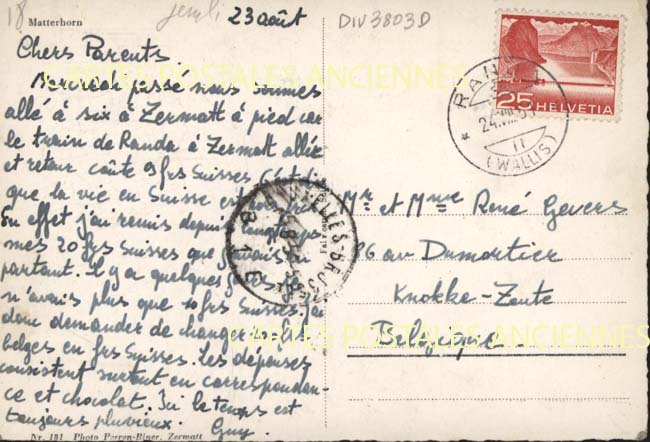 18
jeudi
23 août
DIV3803D
Matterhorn
Chers Parents
Mercredi passé nous sommes
allé à six à Zermatt à pied car
le train de Randa à Zermatt aller
et retour coûte 9 frs Suisses. C'est dire
que la vie en Suisse est
En effet j'ai remis depuis longtemps
mes 20 frs Suisses que j'avais en
partant. Il y a quelques jours je
n'avais plus que 10 frs Suisses. J'ai
donc demander de changer
belges en frs Suisses. Les dépenses
consistent surtout en correspondan-
ce et chocolat. Ici le temps est
toujours pluvieux. Guy.
Nr. 181 Photo Perren-Biner, Zermatt
25 HELVETIA
RANDA
24.VIII
(WALLIS)
BRUXELLES-BRUSSEL
Mr et Mme René Gevers
96 av Dumortier
Knokke-Zoute
Belgique
CARTES POSTALES ANCIENNES
CARTES POSTALES ANCIENNES